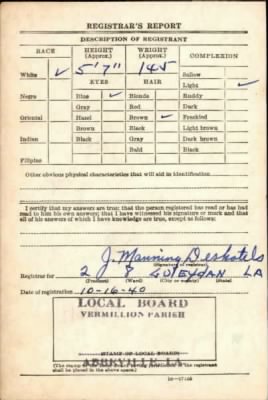 REGISTRAR'S REPORT
DESCRIPTION OF REGISTRANT
RACE HEIGHT (Approx.) WEIGHT (Approx.) COMPLEXION
5'7" 145
White ✓ EYES HAIR Sallow
Light ✓
Negro Blue ✓ Blonde Ruddy
Gray Red Dark
Oriental Hazel Brown ✓ Freckled
Brown Black Light brown
Indian Black Gray Dark brown
Bald Black
Filipino
Other obvious physical characteristics that will aid in identification
I certify that my answers are true; that the person registered has read or has had
read to him his own answers; that I have witnessed his signature or mark and that
all of his answers of which I have knowledge are true, except as follows:
J. Manning Deshotels
(Signature of registrar)
Registrar for 2 8 GUEYDAN LA
(Precinct) (Ward) (City or county) (State)
Date of registration 10-16-40
LOCAL BOARD
VERMILLION PARISH
(STAMP OF LOCAL BOARD)
ABBEVILLE, LA.
(The stamp of the
shall be placed in the above space.)